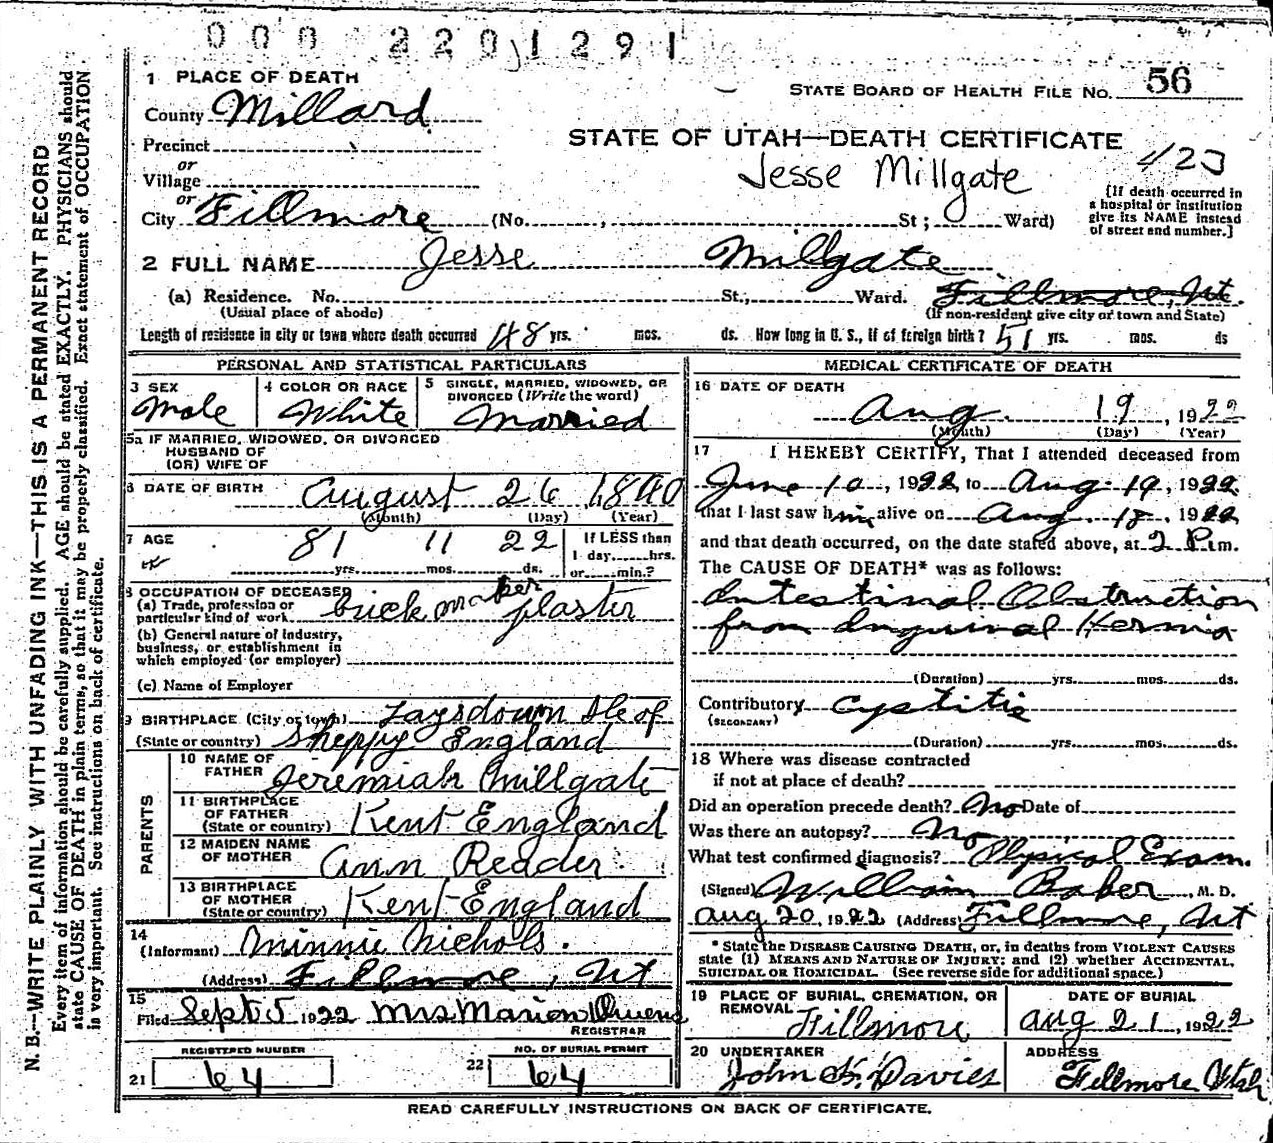 000 2201291
1 PLACE OF DEATH
STATE BOARD OF HEALTH FILE NO. 56
County Millard
STATE OF UTAH—DEATH CERTIFICATE
Precinct
or
Village
Jesse Millgate
423
or
City Fillmore (No. , St ; Ward)
[If death occurred in
a hospital or institution
give its NAME instead
of street and number.]
2 FULL NAME Jesse Millgate
(a) Residence. No. St., Ward. Fillmore, Ut.
(Usual place of abode) (If non-resident give city or town and State)
Length of residence in city or town where death occurred 48 yrs. mos. ds. How long in U. S., if of foreign birth? 51 yrs. mos. ds
PERSONAL AND STATISTICAL PARTICULARS
3 SEX Male
4 COLOR OR RACE White
5 SINGLE, MARRIED, WIDOWED, OR
DIVORCED (Write the word)
Married
5a IF MARRIED, WIDOWED, OR DIVORCED
HUSBAND OF
(OR) WIFE OF
6 DATE OF BIRTH August 26 1840
(Month) (Day) (Year)
7 AGE 81 11 22
yrs. mos. ds.
If LESS than
1 day hrs.
or min.?
8 OCCUPATION OF DECEASED
(a) Trade, profession or
particular kind of work brick maker plaster
(b) General nature of industry,
business, or establishment in
which employed (or employer)
(c) Name of Employer
9 BIRTHPLACE (City or town) Laysdown Ile of
(State or country) Sheppy England
PARENTS
10 NAME OF
FATHER Jeremiah Millgate
11 BIRTHPLACE
OF FATHER
(State or country) Kent England
12 MAIDEN NAME
OF MOTHER Ann Reader
13 BIRTHPLACE
OF MOTHER
(State or country) Kent England
14
(Informant) Minnie Nichols.
(Address) Fillmore, Ut
15
Filed Sept 5 1922 Mrs Marion
REGISTRAR
REGISTERED NUMBER
21 64
NO. OF BURIAL PERMIT
22 64
MEDICAL CERTIFICATE OF DEATH
16 DATE OF DEATH
Aug. 19, 1922
(Month) (Day) (Year)
17 I HEREBY CERTIFY, That I attended deceased from
June 10, 1922 to Aug. 19, 1922
that I last saw him alive on Aug. 18, 1922
and that death occurred, on the date stated above, at 2 P.m.
The CAUSE OF DEATH* was as follows:
Intestinal Obstruction
from Inguinal Hernia
(Duration) yrs. mos. ds.
Contributory Cystitis
(SECONDARY)
(Duration) yrs. mos. ds.
18 Where was disease contracted
if not at place of death?
Did an operation precede death? No Date of
Was there an autopsy? No
What test confirmed diagnosis? Physical Exam.
(Signed) William Baker M. D.
Aug 20, 1922 (Address) Fillmore, Ut
* State the DISEASE CAUSING DEATH, or, in deaths from VIOLENT CAUSES
state (1) MEANS AND NATURE OF INJURY; and (2) whether ACCIDENTAL,
SUICIDAL OR HOMICIDAL. (See reverse side for additional space.)
19 PLACE OF BURIAL, CREMATION, OR
REMOVAL Fillmore
DATE OF BURIAL
Aug 21, 1922
20 UNDERTAKER
John S. Davies
ADDRESS
Fillmore Utah
READ CAREFULLY INSTRUCTIONS ON BACK OF CERTIFICATE.
N. B.—WRITE PLAINLY WITH UNFADING INK—THIS IS A PERMANENT RECORD
Every item of information should be carefully supplied. AGE should be stated EXACTLY. PHYSICIANS should
state CAUSE OF DEATH in plain terms, so that it may be properly classified. Exact statement of OCCUPATION
is very important. See instructions on back of certificate.